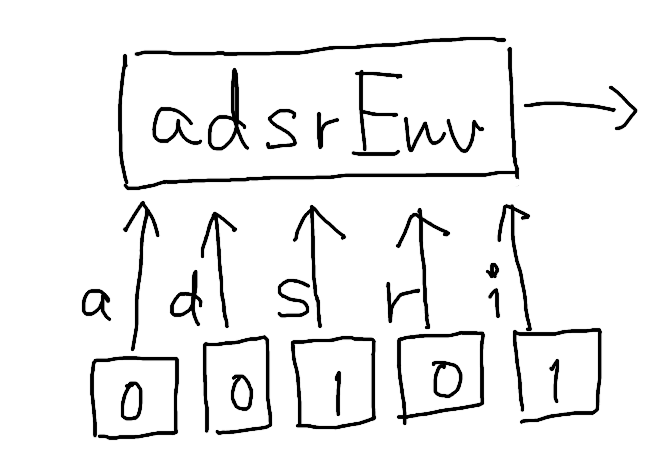 adsrEnv
a d s r i
0 0 1 0 1